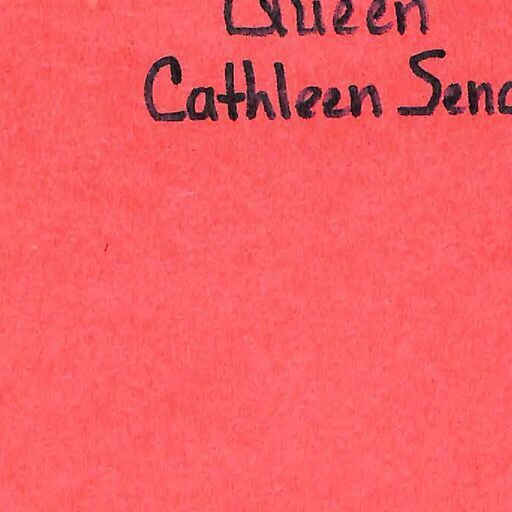 Queen
Cathleen Send